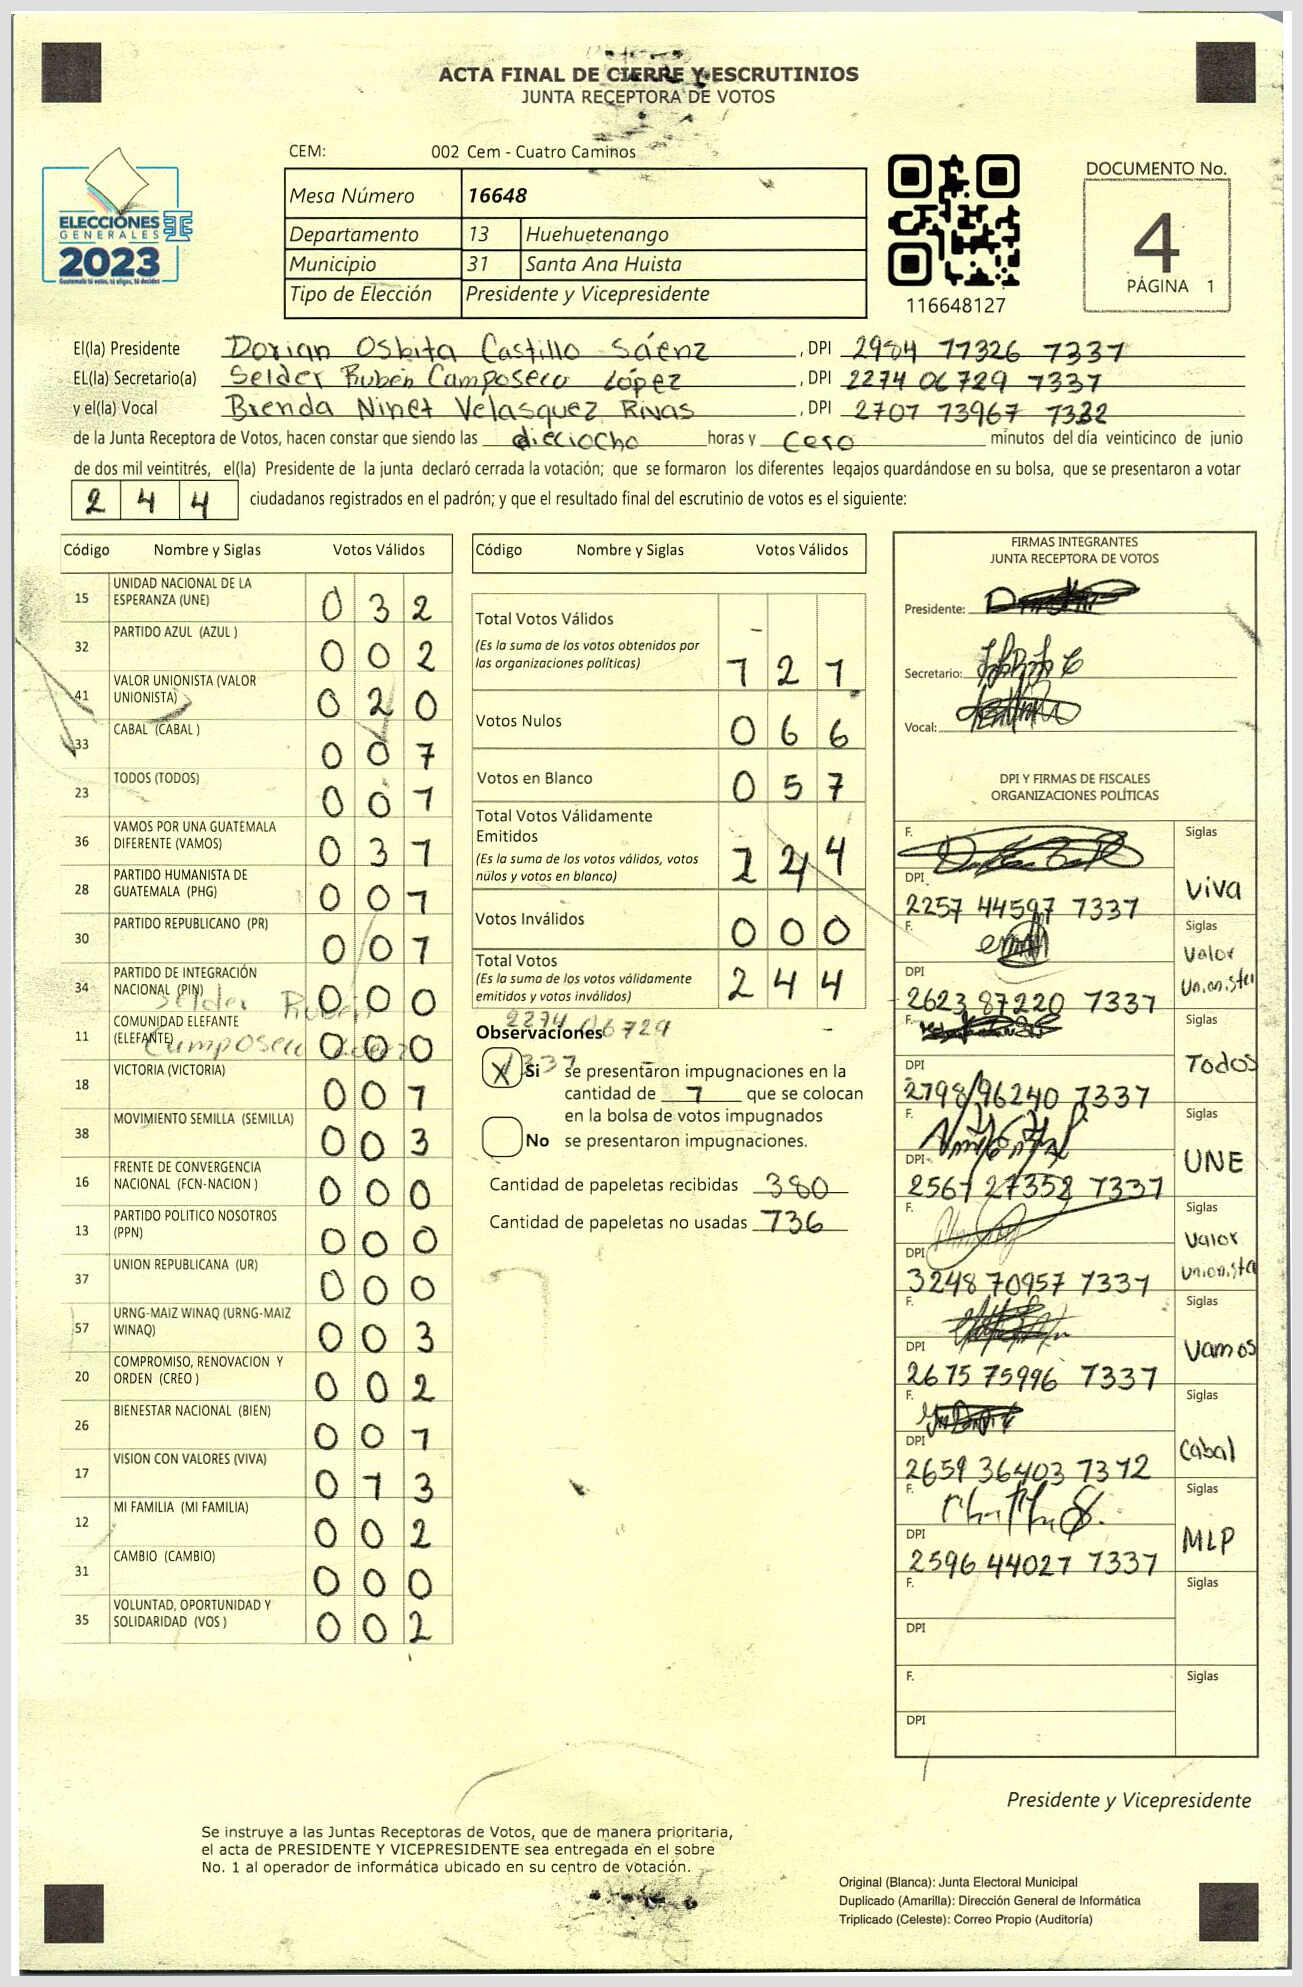 ACTA FINAL DE CIERRE Y ESCRUTINIOS
JUNTA RECEPTORA DE VOTOS
CEM: 002 Cem - Cuatro Caminos
Mesa Número 16648
Departamento 13 Huehuetenango
Municipio 31 Santa Ana Huista
Tipo de Elección Presidente y Vicepresidente
ELECCIONES
GENERALES
2023
Guatemala tú votas, tú eliges, tú decides
116648127
DOCUMENTO No.
4
PÁGINA 1
El(la) Presidente Dorian Osbita Castillo Sáenz , DPI 2984 11326 1331
EL(la) Secretario(a) Selder Rubén Camposeco López , DPI 2274 06729 1331
y el(la) Vocal Brenda Ninet Velasquez Rivas , DPI 2707 13967 1332
de la Junta Receptora de Votos, hacen constar que siendo las dieciocho horas y cero minutos del día veinticinco de junio
de dos mil veintitrés, el(la) Presidente de la junta declaró cerrada la votación; que se formaron los diferentes legajos guardándose en su bolsa, que se presentaron a votar
2 4 4 ciudadanos registrados en el padrón; y que el resultado final del escrutinio de votos es el siguiente:
Código Nombre y Siglas Votos Válidos
15 UNIDAD NACIONAL DE LA
ESPERANZA (UNE) 0 3 2
32 PARTIDO AZUL (AZUL ) 0 0 2
41 VALOR UNIONISTA (VALOR
UNIONISTA) 0 2 0
33 CABAL (CABAL ) 0 0 7
23 TODOS (TODOS) 0 0 1
36 VAMOS POR UNA GUATEMALA
DIFERENTE (VAMOS) 0 3 1
28 PARTIDO HUMANISTA DE
GUATEMALA (PHG) 0 0 1
30 PARTIDO REPUBLICANO (PR) 0 0 1
34 PARTIDO DE INTEGRACIÓN
NACIONAL (PIN) 0 0 0
Selder Rubén
11 COMUNIDAD ELEFANTE
(ELEFANTE) 0 0 0
Camposeco López
18 VICTORIA (VICTORIA) 0 0 1
38 MOVIMIENTO SEMILLA (SEMILLA) 0 0 3
16 FRENTE DE CONVERGENCIA
NACIONAL (FCN-NACION ) 0 0 0
13 PARTIDO POLITICO NOSOTROS
(PPN) 0 0 0
37 UNION REPUBLICANA (UR) 0 0 0
57 URNG-MAIZ WINAQ (URNG-MAIZ
WINAQ) 0 0 3
20 COMPROMISO, RENOVACION Y
ORDEN (CREO ) 0 0 2
26 BIENESTAR NACIONAL (BIEN) 0 0 1
17 VISION CON VALORES (VIVA) 0 1 3
12 MI FAMILIA (MI FAMILIA) 0 0 2
31 CAMBIO (CAMBIO) 0 0 0
35 VOLUNTAD, OPORTUNIDAD Y
SOLIDARIDAD (VOS ) 0 0 2
Código Nombre y Siglas Votos Válidos
Total Votos Válidos
(Es la suma de los votos obtenidos por
las organizaciones políticas) 1 2 1
Votos Nulos 0 6 6
Votos en Blanco 0 5 7
Total Votos Válidamente
Emitidos
(Es la suma de los votos válidos, votos
nulos y votos en blanco) 2 4 4
Votos Inválidos 0 0 0
Total Votos
(Es la suma de los votos válidamente
emitidos y votos inválidos) 2 4 4
2274 06729
Observaciones
1331
X Si se presentaron impugnaciones en la
cantidad de 1 que se colocan
en la bolsa de votos impugnados
No se presentaron impugnaciones.
Cantidad de papeletas recibidas 380
Cantidad de papeletas no usadas 136
FIRMAS INTEGRANTES
JUNTA RECEPTORA DE VOTOS
Presidente:
Secretario:
Vocal:
DPI Y FIRMAS DE FISCALES
ORGANIZACIONES POLÍTICAS
F. Siglas
DPI 2257 44597 1331 Viva
F. Siglas
DPI 2623 87220 1331 Valor Unionista
F. Siglas
DPI 2798 96240 1331 Todos
F. Siglas
DPI 2567 27352 1331 UNE
F. Siglas
DPI 3248 70957 1331 Valor Unionista
F. Siglas
DPI 2675 75996 1331 Vamos
F. Siglas
DPI 2659 36403 1312 Cabal
F. Siglas
DPI 2596 44027 1331 MLP
F. Siglas
DPI
F. Siglas
DPI
Presidente y Vicepresidente
Se instruye a las Juntas Receptoras de Votos, que de manera prioritaria,
el acta de PRESIDENTE Y VICEPRESIDENTE sea entregada en el sobre
No. 1 al operador de informática ubicado en su centro de votación.
Original (Blanca): Junta Electoral Municipal
Duplicado (Amarilla): Dirección General de Informática
Triplicado (Celeste): Correo Propio (Auditoría)